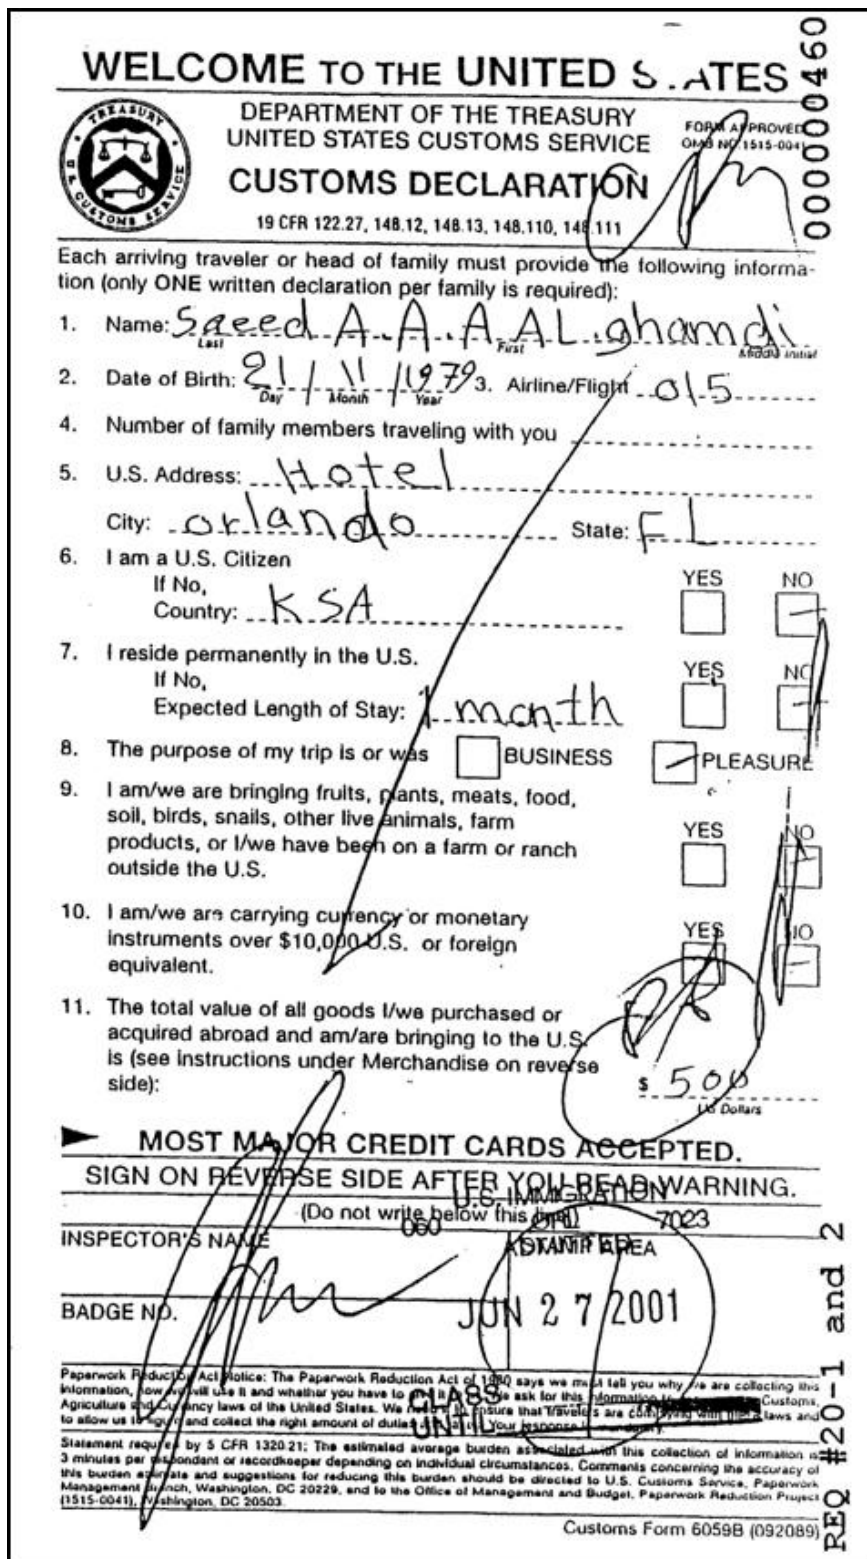 WELCOME TO THE UNITED S ATES
0000000460
DEPARTMENT OF THE TREASURY
UNITED STATES CUSTOMS SERVICE
FORM APPROVED
OMB NO. 1515-0041
TREASURY
U.S. CUSTOMS SERVICE
CUSTOMS DECLARATION
19 CFR 122.27, 148.12, 148.13, 148.110, 148.111
Each arriving traveler or head of family must provide the following informa-
tion (only ONE written declaration per family is required):
1. Name: Saeed A.A.A AL.ghamdi
Last First Middle Initial
2. Date of Birth: 21 / 11 / 1979 3. Airline/Flight 015
Day Month Year
4. Number of family members traveling with you
5. U.S. Address: Hotel
City: orlando State: FL
6. I am a U.S. Citizen YES NO
If No,
Country: KSA
7. I reside permanently in the U.S. YES NO
If No,
Expected Length of Stay: 1 month
8. The purpose of my trip is or was BUSINESS PLEASURE
9. I am/we are bringing fruits, plants, meats, food,
soil, birds, snails, other live animals, farm
products, or I/we have been on a farm or ranch
outside the U.S. YES NO
10. I am/we are carrying currency or monetary
instruments over $10,000 U.S. or foreign
equivalent. YES NO
11. The total value of all goods I/we purchased or
acquired abroad and am/are bringing to the U.S.
is (see instructions under Merchandise on reverse
side): $ 500
US Dollars
MOST MAJOR CREDIT CARDS ACCEPTED.
SIGN ON REVERSE SIDE AFTER YOU READ WARNING.
U.S. IMMIGRATION
(Do not write below this line)
060 ORL 7023
INSPECTOR'S NAME
ADMITTED
STAMP AREA
BADGE NO.
JUN 27 2001
CLASS
UNTIL
Paperwork Reduction Act Notice: The Paperwork Reduction Act of 1980 says we must tell you why we are collecting this
information, how we will use it and whether you have to give it to us. We ask for this information to Customs,
Agriculture and Currency laws of the United States. We need it to ensure that travelers are complying with these laws and
to allow us to figure and collect the right amount of duties Your response
Statement required by 5 CFR 1320.21; The estimated average burden associated with this collection of information is
3 minutes per respondent or recordkeeper depending on individual circumstances. Comments concerning the accuracy of
this burden estimate and suggestions for reducing this burden should be directed to U.S. Customs Service, Paperwork
Management Branch, Washington, DC 20229, and to the Office of Management and Budget, Paperwork Reduction Project
(1515-0041), Washington, DC 20503.
Customs Form 6059B (092089)
REQ #20-1 and 2